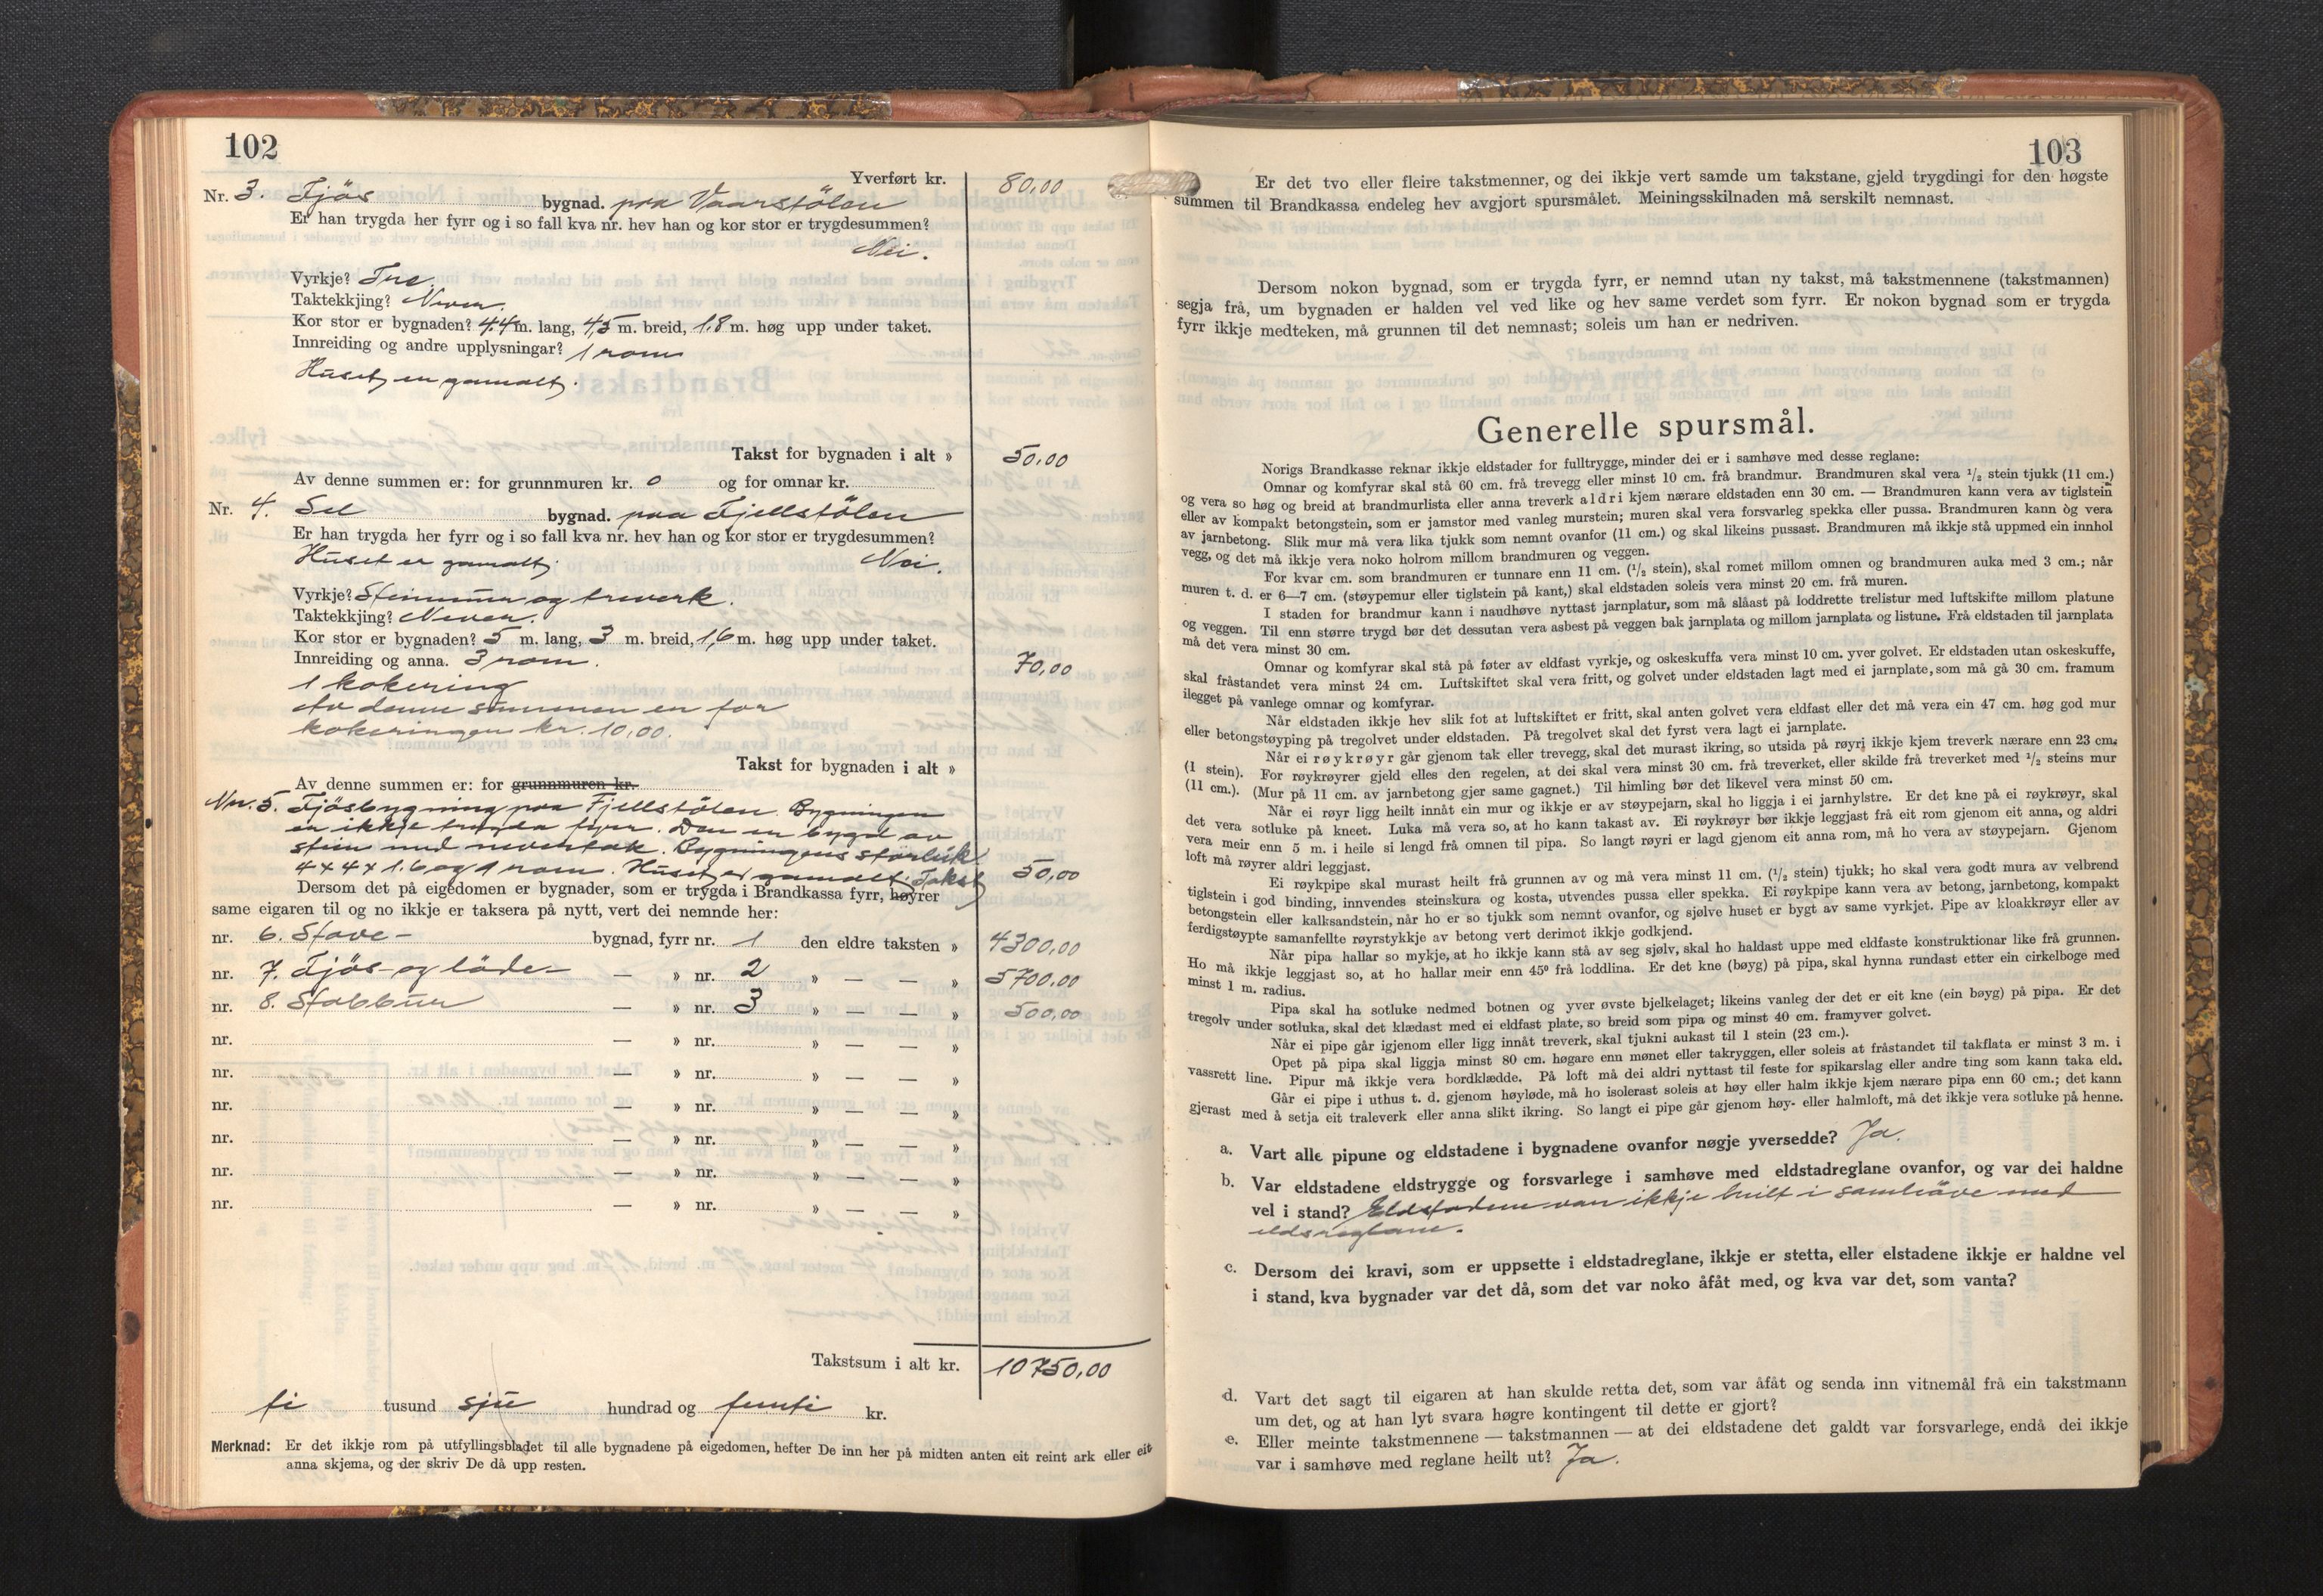 102
Yverført kr. 80,00
Nr. 3. Fjös bygnad. paa Vaarstölen
Er han trygda her fyrr og i so fall kva nr. hev han og kor stor er trygdesummen?
Nei.
Vyrkje? Tre.
Taktekkjing? Never.
Kor stor er bygnaden? 4.4 m. lang, 4,5 m. breid, 1.8 m. høg upp under taket.
Innreiding og andre upplysningar? 1 rom
Huset er gamalt.
Takst for bygnaden i alt » 50,00
Av denne summen er: for grunnmuren kr. 0 og for omnar kr.
Nr. 4. Sel bygnad. paa Fjellstölen
Er han trygda her fyrr og i so fall kva nr. hev han og kor stor er trygdesummen?
Huset er gamalt. Nei.
Vyrkje? Steinmur og treverk.
Taktekkjing? Never.
Kor stor er bygnaden? 5 m. lang, 3 m. breid, 1,6 m. høg upp under taket.
Innreiding og anna. 3 rom. 70,00
1 kokering
Av denne summen er for
kokeringen kr. 10,00.
Takst for bygnaden i alt »
Av denne summen er: for grunnmuren kr.
Nr. 5. Fjösbygning paa Fjellstölen. Bygningen
er ikkje trygda fyrr. Den er bygd av
stein med nevertak. Bygningens störleik
4 x 4 x 1.6 og 1 rom. Huset er gamalt. Takst 50,00
Dersom det på eigedomen er bygnader, som er trygda i Brandkassa fyrr, høyrer
same eigaren til og no ikkje er taksera på nytt, vert dei nemnde her:
nr. 6. Stove- bygnad, fyrr nr. 1 den eldre taksten » 4300,00
nr. 7. Fjös- og löde- — » nr. 2 » — — » 5700.00
nr. 8. Stabbur — » nr. 3 » — — » 500,00
nr. — » nr. » — — »
nr. — » nr. » — — »
nr. — » nr. » — — »
nr. — » nr. » — — »
nr. — » nr. » — — »
nr. — » nr. » — — »
Takstsum i alt kr. 10750,00
ti tusund sju hundrad og femti kr.
Merknad: Er det ikkje rom på utfyllingsbladet til alle bygnadene på eigedomen, hefter De inn her på midten anten eit reint ark eller eit
anna skjema, og der skriv De då upp resten.
103
Er det tvo eller fleire takstmenner, og dei ikkje vert samde um takstane, gjeld trygdingi for den høgste
summen til Brandkassa endeleg hev avgjort spursmålet. Meiningsskilnaden må serskilt nemnast.
Dersom nokon bygnad, som er trygda fyrr, er nemnd utan ny takst, må takstmennene (takstmannen)
segja frå, um bygnaden er halden vel ved like og hev same verdet som fyrr. Er nokon bygnad som er trygda
fyrr ikkje medteken, må grunnen til det nemnast; soleis um han er nedriven.
Generelle spursmål.
Norigs Brandkasse reknar ikkje eldstader for fulltrygge, minder dei er i samhøve med desse reglane:
Omnar og komfyrar skal stå 60 cm. frå trevegg eller minst 10 cm. frå brandmur. Brandmuren skal vera 1/2 stein tjukk (11 cm.)
og vera so høg og breid at brandmurlista eller anna treverk aldri kjem nærare eldstaden enn 30 cm. — Brandmuren kann vera av tiglstein
eller av kompakt betongstein, som er jamstor med vanleg murstein; muren skal vera forsvarleg spekka eller pussa. Brandmuren kann òg vera
av jarnbetong. Slik mur må vera lika tjukk som nemnt ovanfor (11 cm.) og skal likeins pussast. Brandmuren må ikkje stå uppmed ein innhol
vegg, og det må ikkje vera noko holrom millom brandmuren og veggen.
For kvar cm. som brandmuren er tunnare enn 11 cm. (1/2 stein), skal romet millom omnen og brandmuren auka med 3 cm.; når
muren t. d. er 6—7 cm. (støypemur eller tiglstein på kant,) skal eldstaden soleis vera minst 20 cm. frå muren.
I staden for brandmur kann i naudhøve nyttast jarnplatur, som må slåast på loddrette trelistur med luftskifte millom platune
og veggen. Til enn større trygd bør det dessutan vera asbest på veggen bak jarnplata og millom jarnplata og listune. Frå eldstaden til jarnplata
må det vera minst 30 cm.
Omnar og komfyrar skal stå på føter av eldfast vyrkje, og oskeskuffa vera minst 10 cm. yver golvet. Er eldstaden utan oskeskuffe,
skal fråstandet vera minst 24 cm. Luftskiftet skal vera fritt, og golvet under eldstaden lagt med ei jarnplate, som må gå 30 cm. framum
ilegget på vanlege omnar og komfyrar.
Når eldstaden ikkje hev slik fot at luftskiftet er fritt, skal anten golvet vera eldfast eller det må vera ein 47 cm. høg god mur
eller betongstøyping på tregolvet under eldstaden. På tregolvet skal det fyrst vera lagt ei jarnplate.
Når ei røykrøyr går gjenom tak eller trevegg, skal det murast ikring, so utsida på røyri ikkje kjem treverk nærare enn 23 cm.
(1 stein). For røykrøyrer gjeld elles den regelen, at dei skal vera minst 30 cm. frå treverket, eller skilde frå treverket med 1/2 steins mur
(11 cm.). (Mur på 11 cm. av jarnbetong gjer same gagnet.) Til himling bør det likevel vera minst 50 cm.
Når ei røyr ligg heilt innåt ein mur og ikkje er av støypejarn, skal ho liggja i ei jarnhylstre. Er det kne på ei røykrøyr, skal
det vera sotluke på kneet. Luka må vera so, at ho kann takast av. Ei røykrøyr bør ikkje leggjast frå eit rom gjenom eit anna, og aldri
vera meir enn 5 m. i heile si lengd frå omnen til pipa. So langt røyri er lagd gjenom eit anna rom, må ho vera av støypejarn. Gjenom
loft må røyrer aldri leggjast.
Ei røykpipe skal murast heilt frå grunnen av og må vera minst 11 cm. (1/2 stein) tjukk; ho skal vera godt mura av velbrend
tiglstein i god binding, innvendes steinskura og kosta, utvendes pussa eller spekka. Ei røykpipe kann vera av betong, jarnbetong, kompakt
betongstein eller kalksandstein, når ho er so tjukk som nemnt ovanfor, og sjølve huset er bygt av same vyrkjet. Pipe av kloakkrøyr eller av
ferdigstøypte samanfellte røyrstykkje av betong vert derimot ikkje godkjend.
Når pipa hallar so mykje, at ho ikkje kann stå av seg sjølv, skal ho haldast uppe med eldfaste konstruktionar like frå grunnen.
Ho må ikkje leggjast so, at ho hallar meir enn 45° frå loddlina. Er det kne (bøyg) på pipa, skal hynna rundast etter ein cirkelboge med
minst 1 m. radius.
Pipa skal ha sotluke nedmed botnen og yver øvste bjelkelaget; likeins vanleg der det er eit kne (ein bøyg) på pipa. Er det
tregolv under sotluka, skal det klædast med ei eldfast plate, so breid som pipa og minst 40 cm. framyver golvet.
Når ei pipe går igjenom eller ligg innåt treverk, skal tjukni aukast til 1 stein (23 cm.).
Opet på pipa skal liggja minst 80 cm. høgare enn mønet eller takryggen, eller soleis at fråstandet til takflata er minst 3 m. i
vassrett line. Pipur må ikkje vera bordklædde. På loft må dei aldri nyttast til feste for spikarslag eller andre ting som kann taka eld.
Går ei pipe i uthus t. d. gjenom høyløde, må ho isolerast soleis at høy eller halm ikkje kjem nærare pipa enn 60 cm.; det kann
gjerast med å setja eit traleverk eller anna slikt ikring. So langt ei pipe går gjenom høy- eller halmloft, må det ikkje vera sotluke på henne.
a. Vart alle pipune og eldstadene i bygnadene ovanfor nøgje yversedde? Ja.
b. Var eldstadene eldstrygge og forsvarlege i samhøve med eldstadreglane ovanfor, og var dei haldne
vel i stand? Eldstadene var ikkje heilt i samhöve med
eldsreglane.
c. Dersom dei kravi, som er uppsette i eldstadreglane, ikkje er stetta, eller elstadene ikkje er haldne vel
i stand, kva bygnader var det då, som det var noko åfåt med, og kva var det, som vanta?
d. Vart det sagt til eigaren at han skulde retta det, som var åfåt og senda inn vitnemål frå ein takstmann
um det, og at han lyt svara høgre kontingent til dette er gjort?
e. Eller meinte takstmennene — takstmannen — at dei eldstadene det galdt var forsvarlege, endå dei ikkje
var i samhøve med reglane heilt ut? Ja.